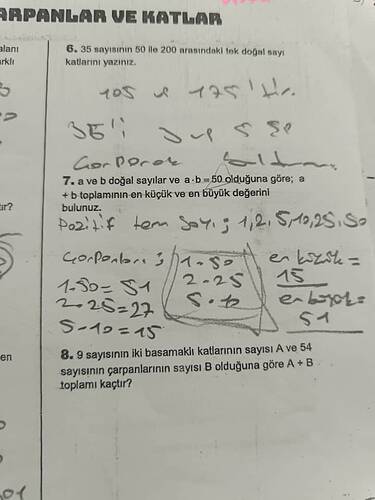 ARPANLAR VE KATLAR
alanı
arklı
6. 35 sayısının 50 ile 200 arasındaki tek doğal sayı
katlarını yazınız.
105 ve 175'tir.
35'i 3 ve 5 ile
çarparak buldum.
7. a ve b doğal sayılar ve a·b = 50 olduğuna göre; a
+ b toplamının en küçük ve en büyük değerini
bulunuz.
tır?
Pozitif tam sayı ; 1,2,5,10,25,50
Çarpanları ;
1-50
2-25
5-10
1-50=51
2-25=27
5-10=15
en küçük =
15
en büyük =
51
en
8. 9 sayısının iki basamaklı katlarının sayısı A ve 54
sayısının çarpanlarının sayısı B olduğuna göre A + B
toplamı kaçtır?